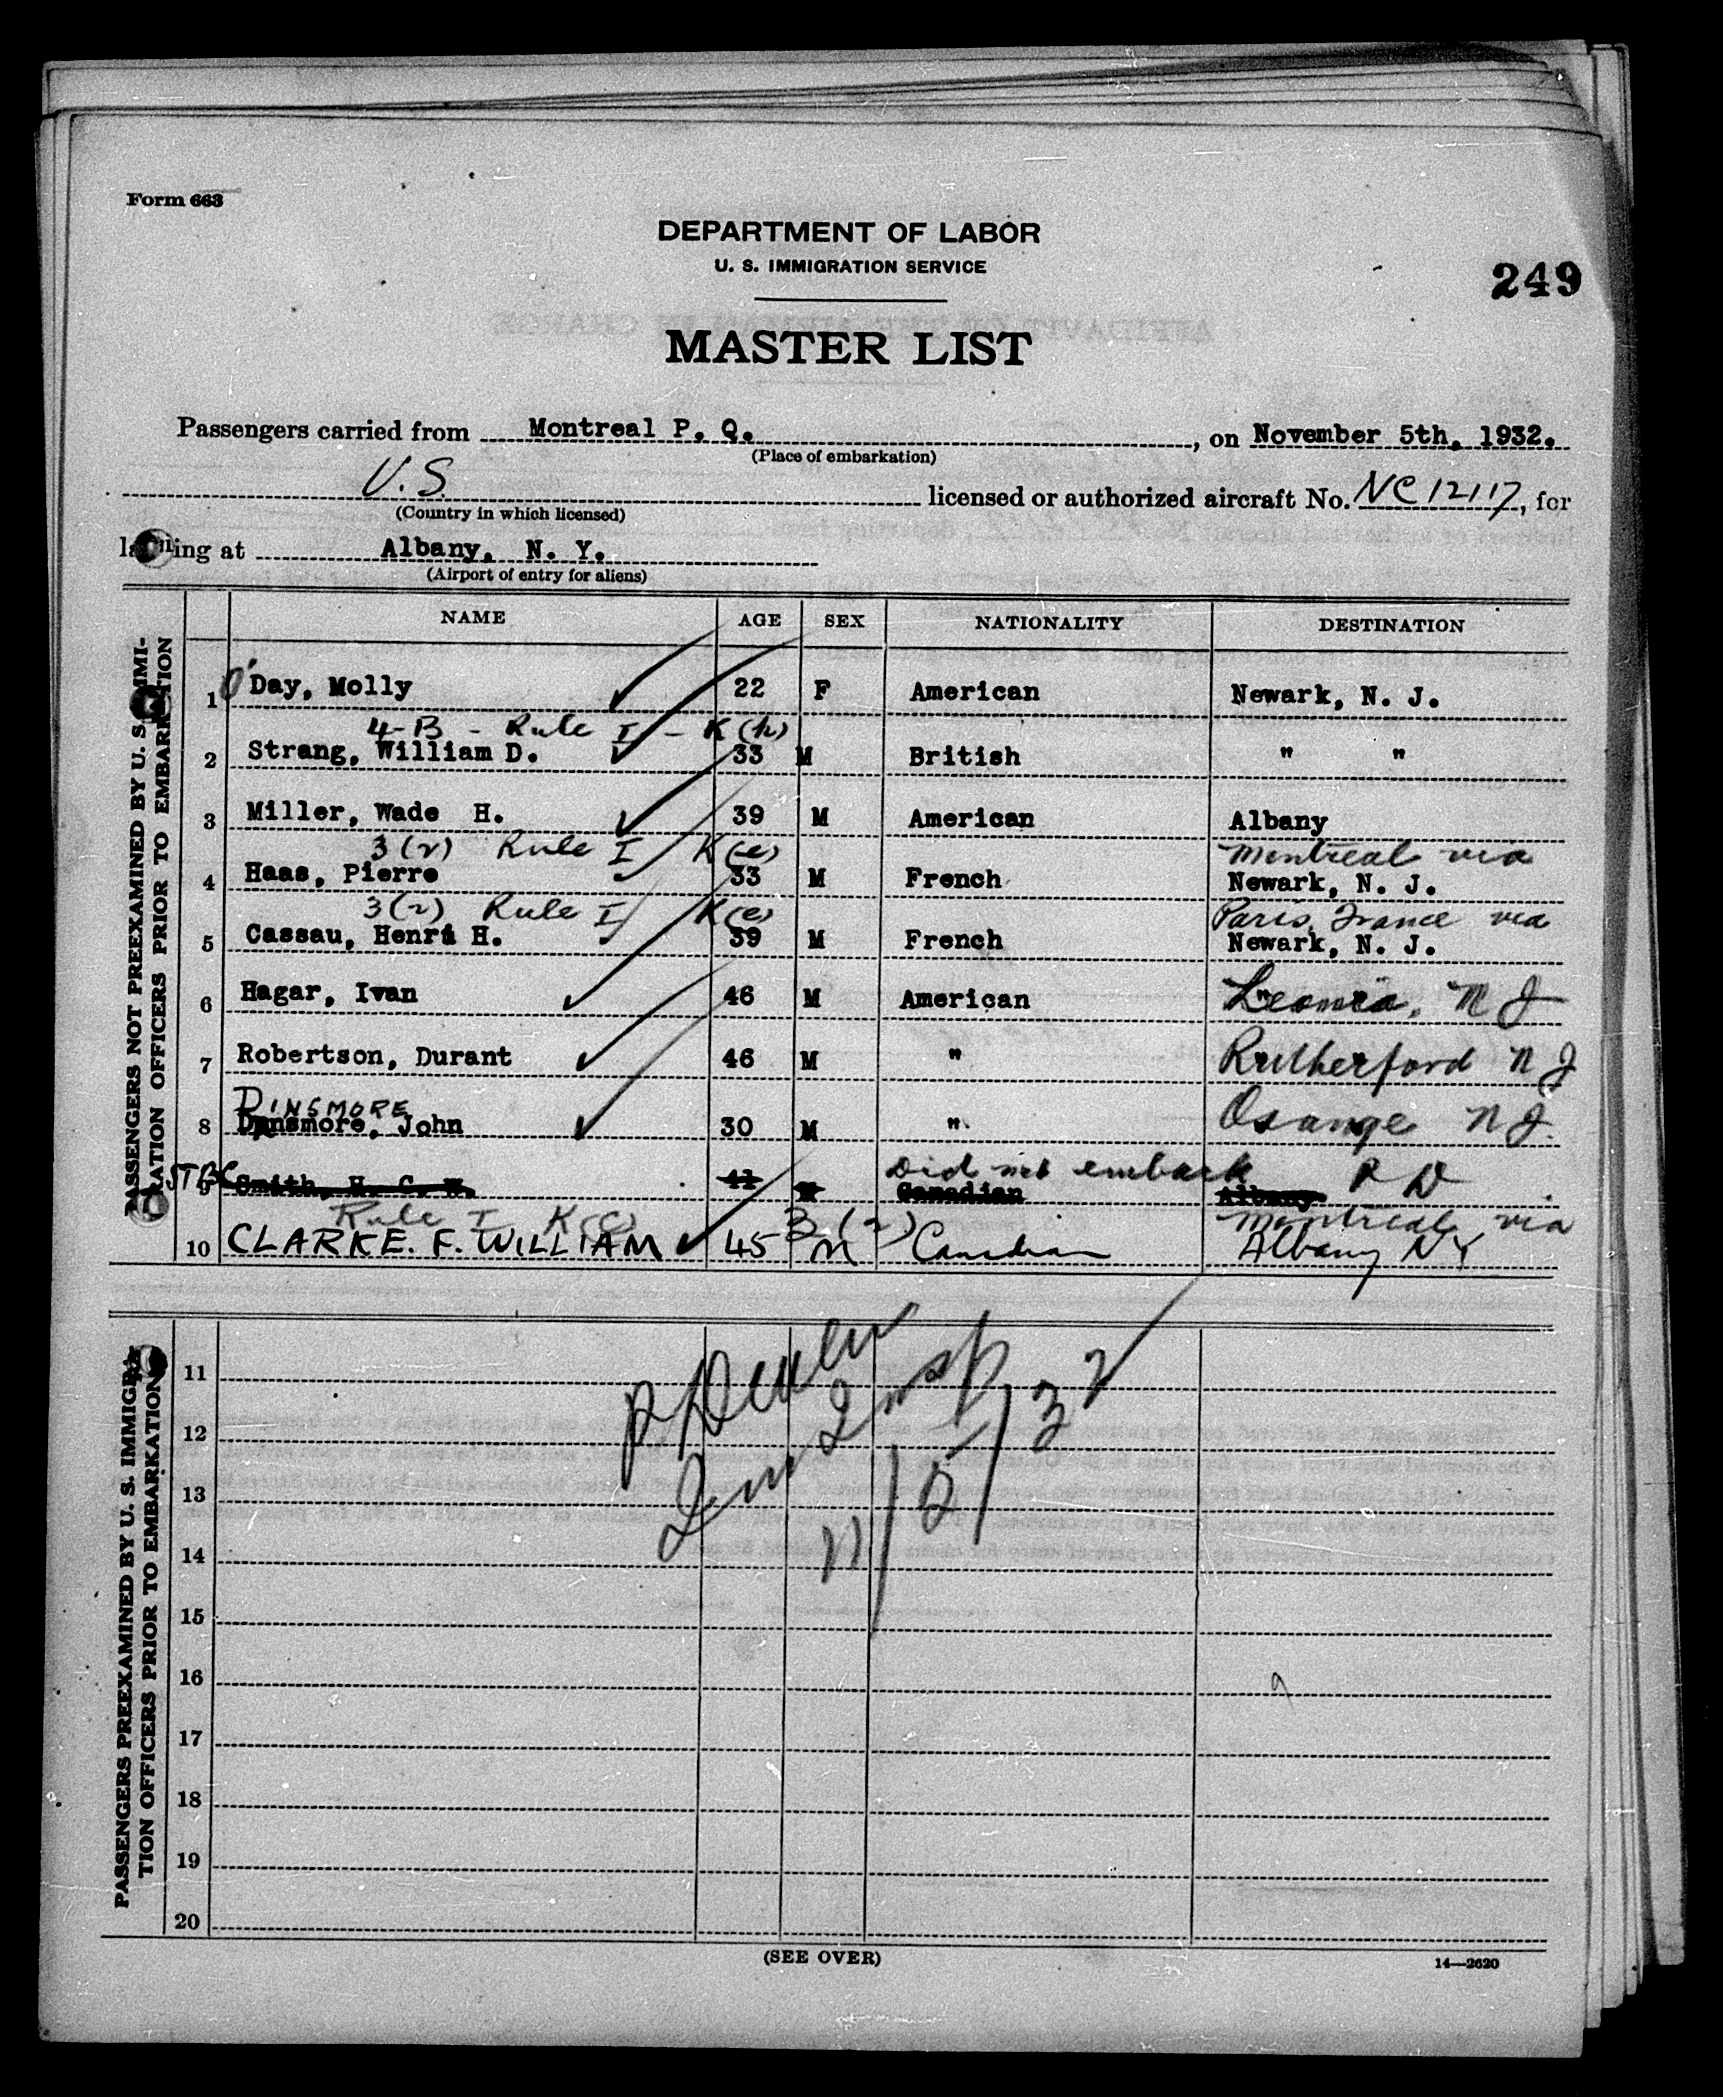 Form 663
DEPARTMENT OF LABOR
U. S. IMMIGRATION SERVICE
249
MASTER LIST
Passengers carried from Montreal P. Q. , on November 5th, 1932.
(Place of embarkation)
U.S. licensed or authorized aircraft No. NC 12117, for
(Country in which licensed)
landing at Albany, N. Y.
(Airport of entry for aliens)
NAME AGE SEX NATIONALITY DESTINATION
PASSENGERS NOT PREEXAMINED BY U. S. IMMI-
GRATION OFFICERS PRIOR TO EMBARKATION
1 O' Day, Molly 22 F American Newark, N. J.
4-B - Rule I - K(h)
2 Strang, William D. 33 M British " "
3 Miller, Wade H. 39 M American Albany
3(2) Rule I K(e) Montreal via
4 Haas, Pierre 33 M French Newark, N. J.
3(2) Rule I K(e) Paris, France via
5 Cassau, Henri H. 39 M French Newark, N. J.
6 Hagar, Ivan 46 M American Leonia, N J
7 Robertson, Durant 46 M " Rutherford N J
DINSMORE
8 Dinsmore, John 30 M " Orange N J.
Did not embark P D
9 Smith, H. C. W. 41 M Canadian Albany
Rule I K(c) 3(2) Montreal via
10 CLARKE. F. WILLIAM 45 M Canadian Albany NY
PASSENGERS PREEXAMINED BY U. S. IMMIGRA-
TION OFFICERS PRIOR TO EMBARKATION
11
12
13
14
15
16
17
18
19
20
Imm Insp
11/5/32
(SEE OVER)
14—2620